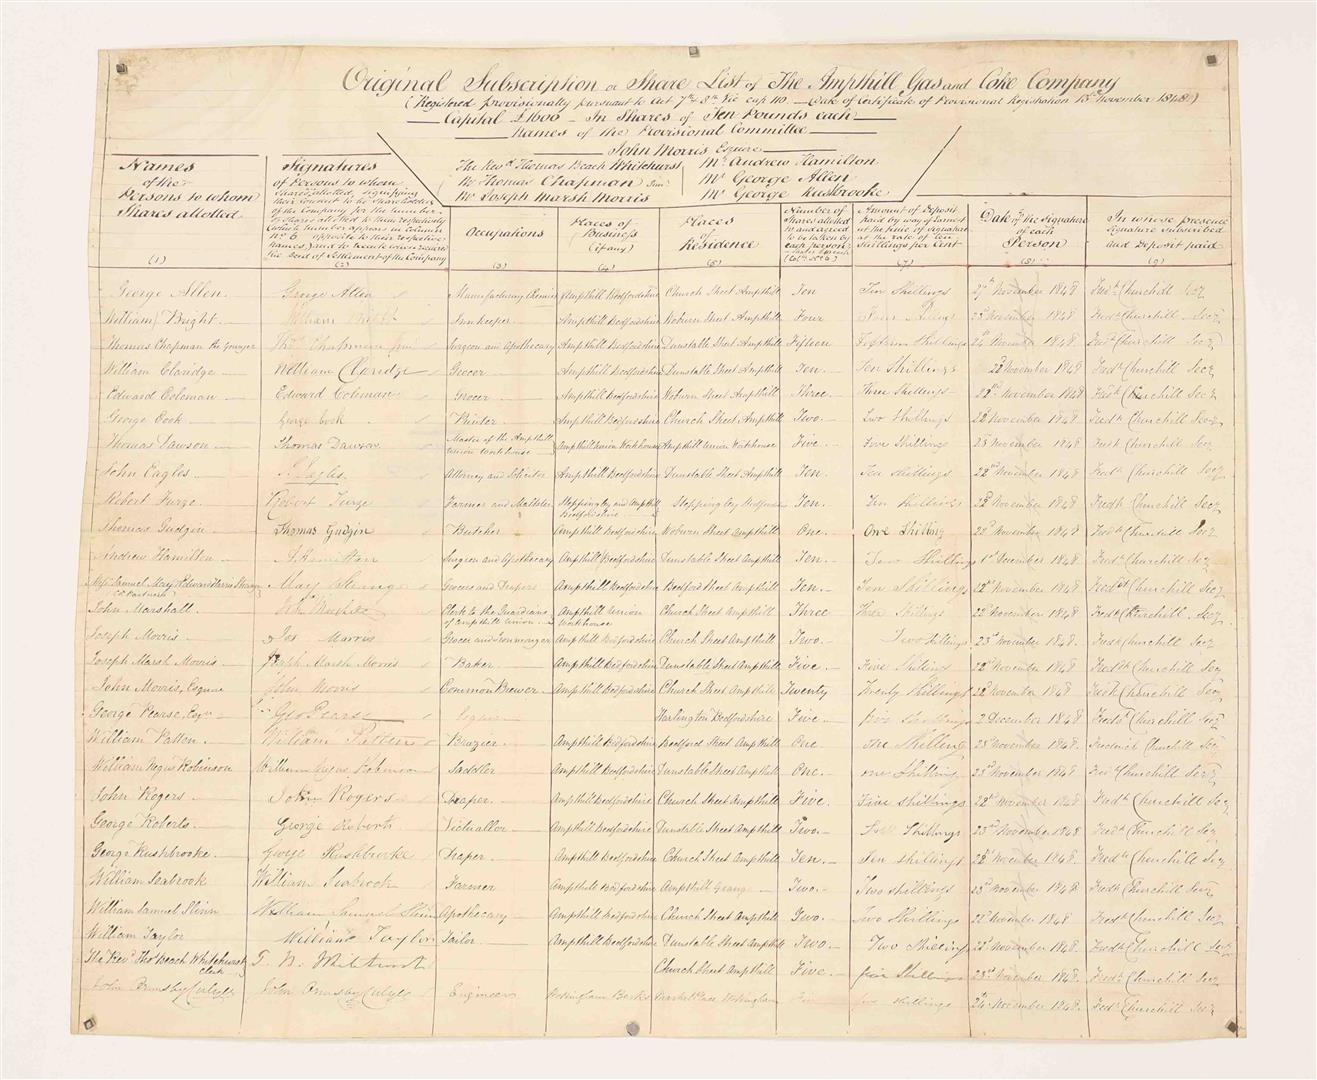 Original Subscription or Share List of The Ampthill Gas and Coke Company
(Registered provisionally pursuant to Act 7th & 8th Vic cap 110 — Date of Certificate of Provisional Registration 15th November 1848)
Capital £1600 — In Shares of Ten Pounds each
Names of the Provisional Committee
John Morris Esquire
The Revd Thomas Beach Whitehurst
Mr Thomas Chapman Junr
Mr Joseph Marsh Morris
Mr Andrew Hamilton
Mr George Allen
Mr George Rushbrooke
Names of the Persons to whom Shares allotted (1)
Signatures of Persons to whom Shares allotted, signifying their consent to be Shareholders of the Company for the number of Shares allotted to them respectively (which number appears in column No 6 opposite to their respective names) and to execute when required the Deed of Settlement of the Company (2)
Occupations (3)
Places of Business (if any) (4)
Places of Residence (5)
Number of Shares allotted to and agreed to be taken by each person
Amount of Deposit paid by way of Earnest at the time of Signature at the rate of ten Shillings per Cent (7)
Date of the Signature of each Person (8)
In whose presence Signature subscribed and Deposit paid (9)
George Allen George Allen Manufacturing Chemist Ampthill Bedfordshire Church Street Ampthill Ten Ten Shillings 27th November 1848 Fredk Churchill Secy
William Bright William Bright Innkeeper Ampthill Bedfordshire Woburn Street Ampthill Four Four November 1848 Fredk Churchill Secy
Thomas Chapman the younger Thos Chapman Junr Surgeon and Apothecary Ampthill Bedfordshire Dunstable Street Ampthill Fifteen Fifteen Shillings November 1848 Fredk Churchill Secy
William Claridge William Claridge Grocer Ampthill Bedfordshire Dunstable Street Ampthill Ten Ten Shillings 22 November 1848 Fredk Churchill Secy
Edward Coleman Edward Coleman Grocer Ampthill Bedfordshire Woburn Street Ampthill Three Three Shillings 22nd November 1848 Fredk Churchill Secy
George Cook George Cook Ampthill Bedfordshire Church Street Ampthill Two Two Shillings 22 November 1848 Fredk Churchill Secy
Thomas Dawson Thomas Dawson Master of the Ampthill Union Workhouse Ampthill Union Workhouse Ampthill Union Workhouse Five Five Shillings 23 November 1848 Fredk Churchill Secy
John Eagles J. Eagles Attorney and Solicitor Ampthill Bedfordshire Dunstable Street Ampthill Ten Ten Shillings 22nd November 1848 Fredk Churchill Secy
Robert Furze Robert Furze Farmer and Maltster Steppingley and Ampthill Bedfordshire Steppingley Bedfordshire Ten Ten Shillings 22 November 1848 Fredk Churchill Secy
Thomas Gudgin Thomas Gudgin Butcher Ampthill Bedfordshire Woburn Street Ampthill One One Shilling 22 November 1848 Fredk Churchill Secy
Andrew Hamilton A. Hamilton Surgeon and Apothecary Ampthill Bedfordshire Dunstable Street Ampthill Ten Ten Shillings 1st December 1848 Fredk Churchill Secy
Samuel May (Copartners) Grocers and Drapers Ampthill Bedfordshire Bedford Street Ampthill Ten Ten Shillings 22nd November 1848 Fredk Churchill Secy
John Marshall Clerk to the Guardians of Ampthill Union Ampthill Union Workhouse Church Street Ampthill Three Three Shillings 22 November 1848 Fredk Churchill Secy
Joseph Morris Jos Morris Grocer and Ironmonger Ampthill Bedfordshire Church Street Ampthill Two Two Shillings 23rd November 1848 Fredk Churchill Secy
Joseph Marsh Morris Joseph Marsh Morris Baker Ampthill Bedfordshire Dunstable Street Ampthill Five Five Shillings 22nd November 1848 Fredk Churchill Secy
John Morris, Esquire John Morris Common Brewer Ampthill Bedfordshire Church Street Ampthill Twenty Twenty Shillings 22 November 1848 Fredk Churchill Secy
George Pearse, Esqre Geo Pearse Esquire Harlington Bedfordshire Five Five Shillings 2 December 1848 Fredk Churchill Secy
William Patten William Patten Brazier Ampthill Bedfordshire Bedford Street Ampthill One One Shilling 23 November 1848 Frederick Churchill Secy
William Negus Robinson William Negus Robinson Saddler Ampthill Bedfordshire Dunstable Street Ampthill One One Shilling 23rd November 1848 Fredk Churchill Secy
John Rogers John Rogers Draper Ampthill Bedfordshire Church Street Ampthill Five Five Shillings 22nd November 1848 Fredk Churchill Secy
George Roberts George Roberts Victualler Ampthill Bedfordshire Dunstable Street Ampthill Two Two Shillings 23rd November 1848 Fredk Churchill Secy
George Rushbrooke George Rushbrooke Draper Ampthill Bedfordshire Church Street Ampthill Ten Ten Shillings 22 November 1848 Fredk Churchill Secy
William Seabrook William Seabrook Farmer Ampthill Bedfordshire Ampthill Grange Two Two Shillings 23rd November 1848 Fredk Churchill Secy
William Samuel William Samuel Apothecary Ampthill Bedfordshire Church Street Ampthill Two Two Shillings 22 November 1848 Fredk Churchill Secy
William Taylor William Taylor Tailor Ampthill Bedfordshire Dunstable Street Ampthill Two Two Shillings 22 November 1848 Fredk Churchill Secy
The Revd Thos Beach Whitehurst Clerk T. B. Whitehurst Church Street Ampthill Five Five Shillings 23rd November 1848 Fredk Churchill Secy
John Ormsby John Ormsby Engineer Wokingham Berks Market Place Wokingham Shillings 24 November 1848 Fredk Churchill Secy